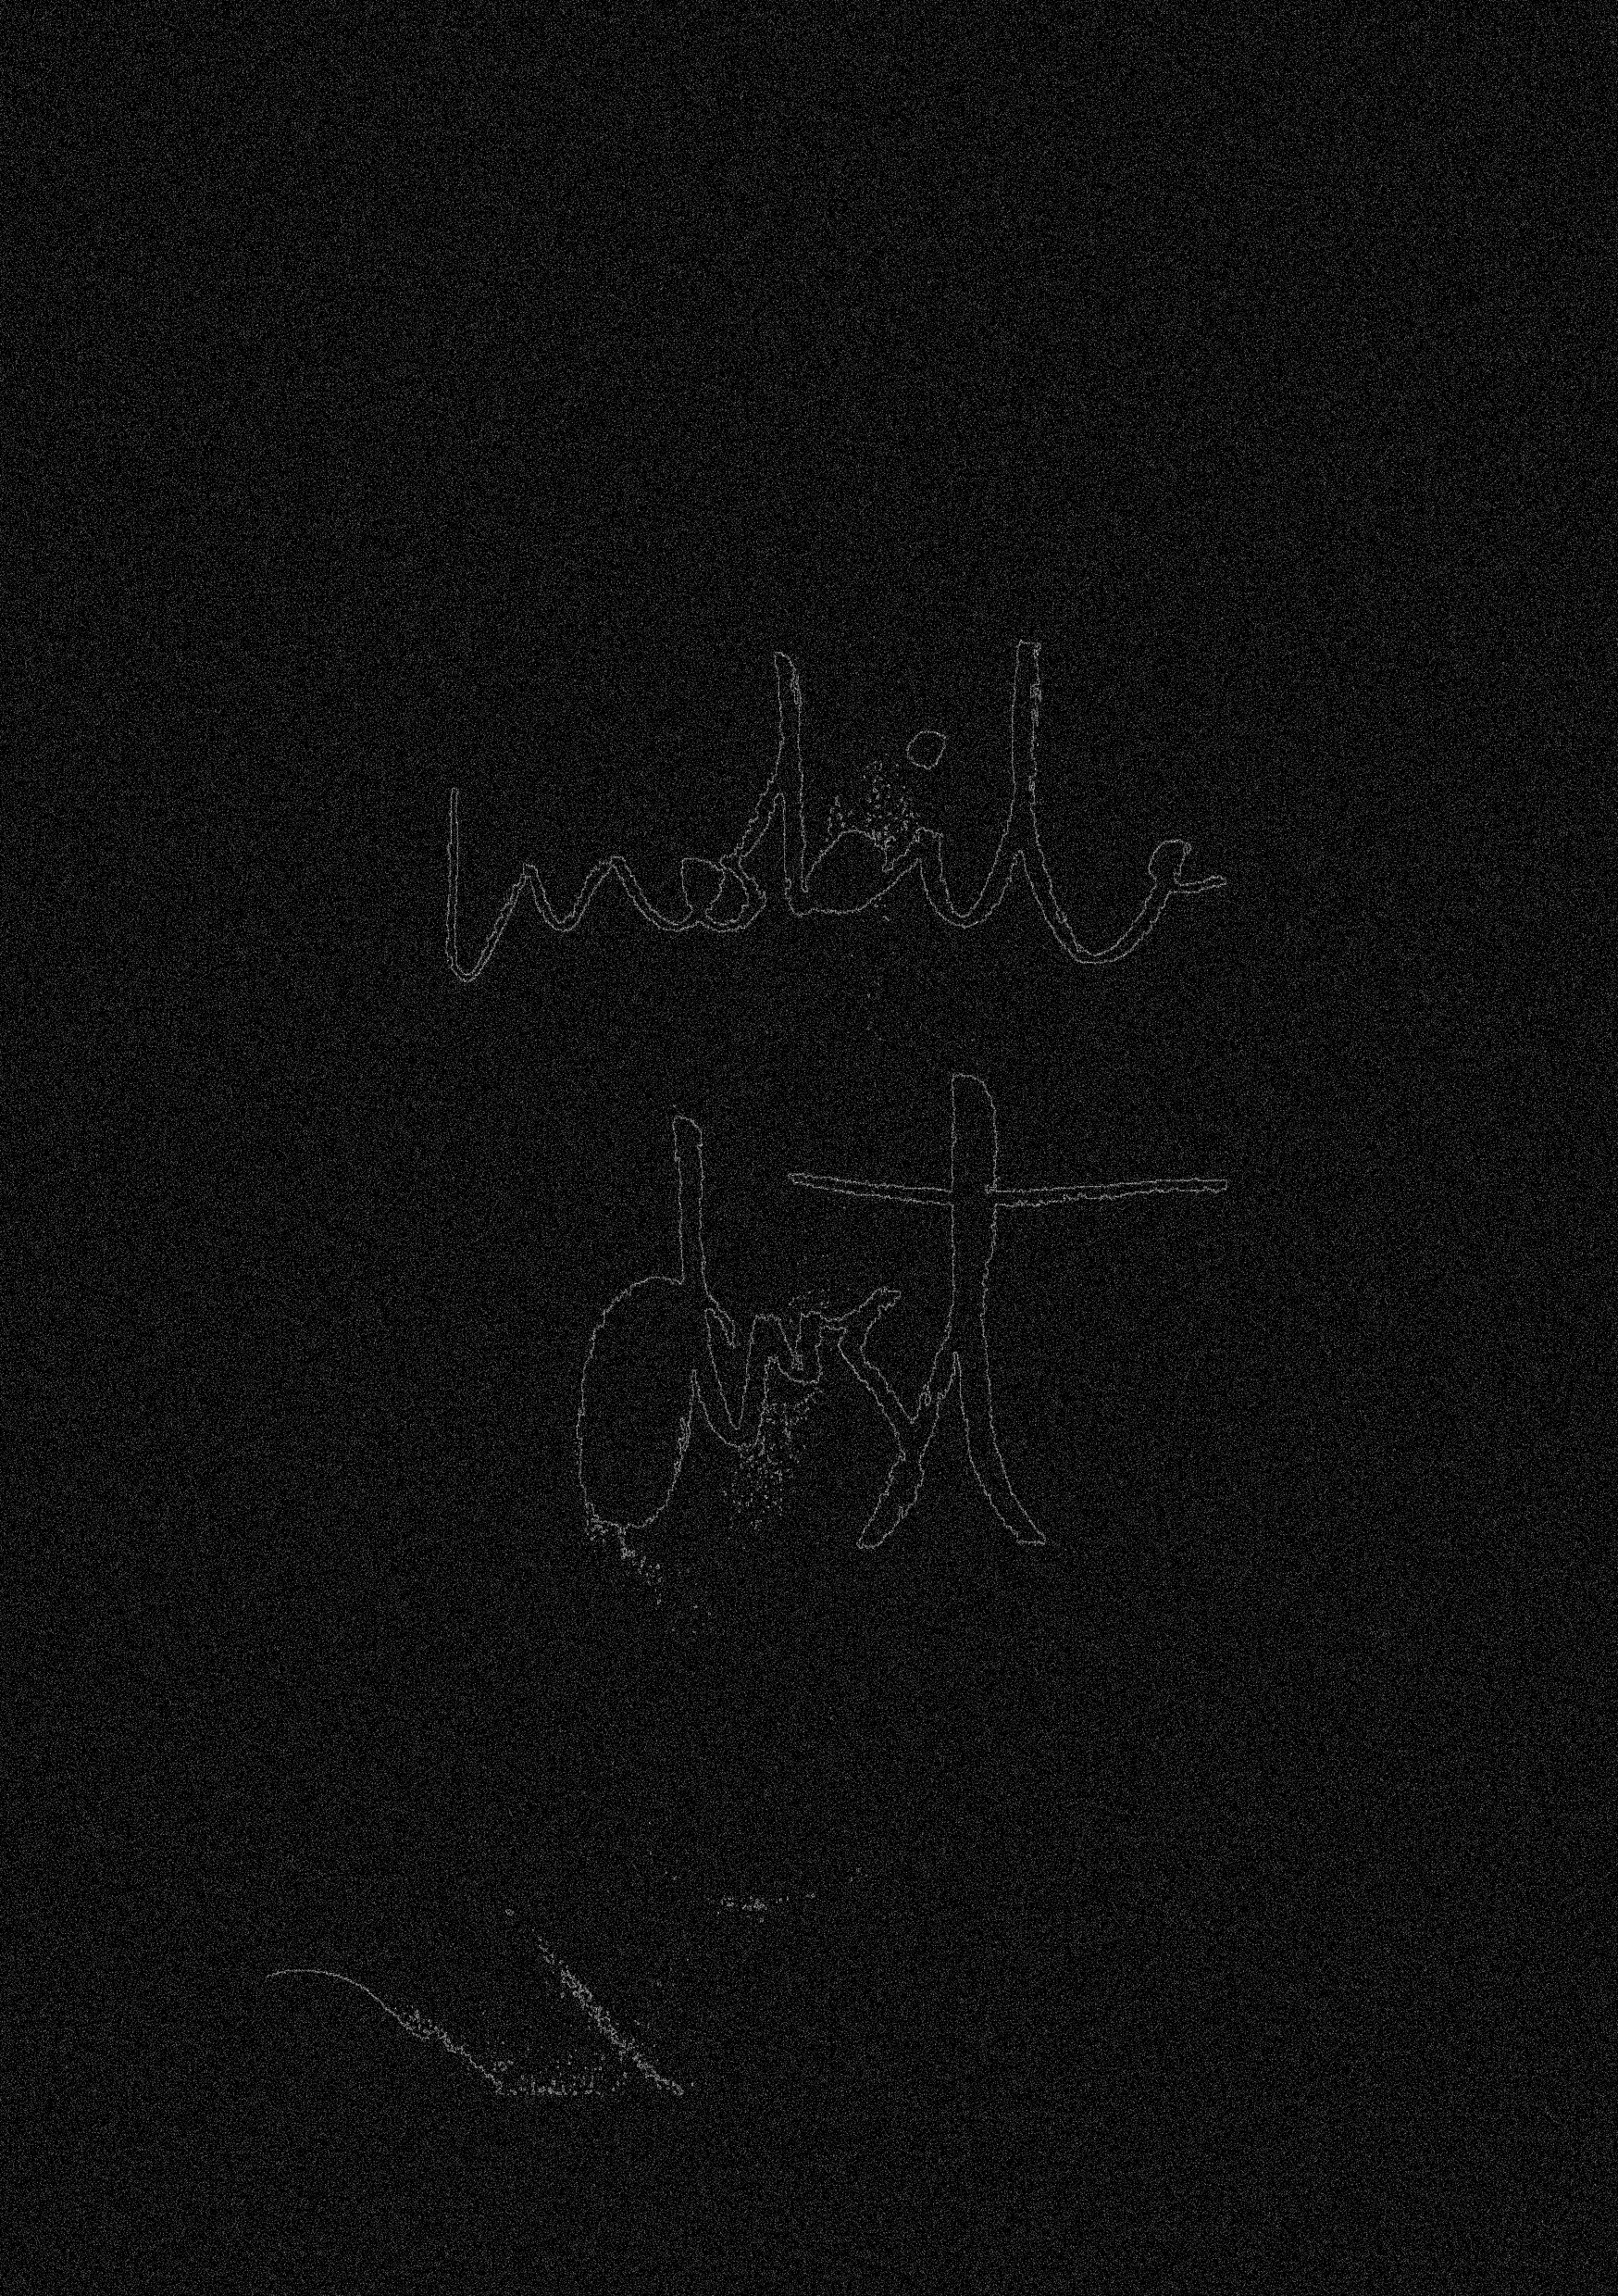 mobile
dust